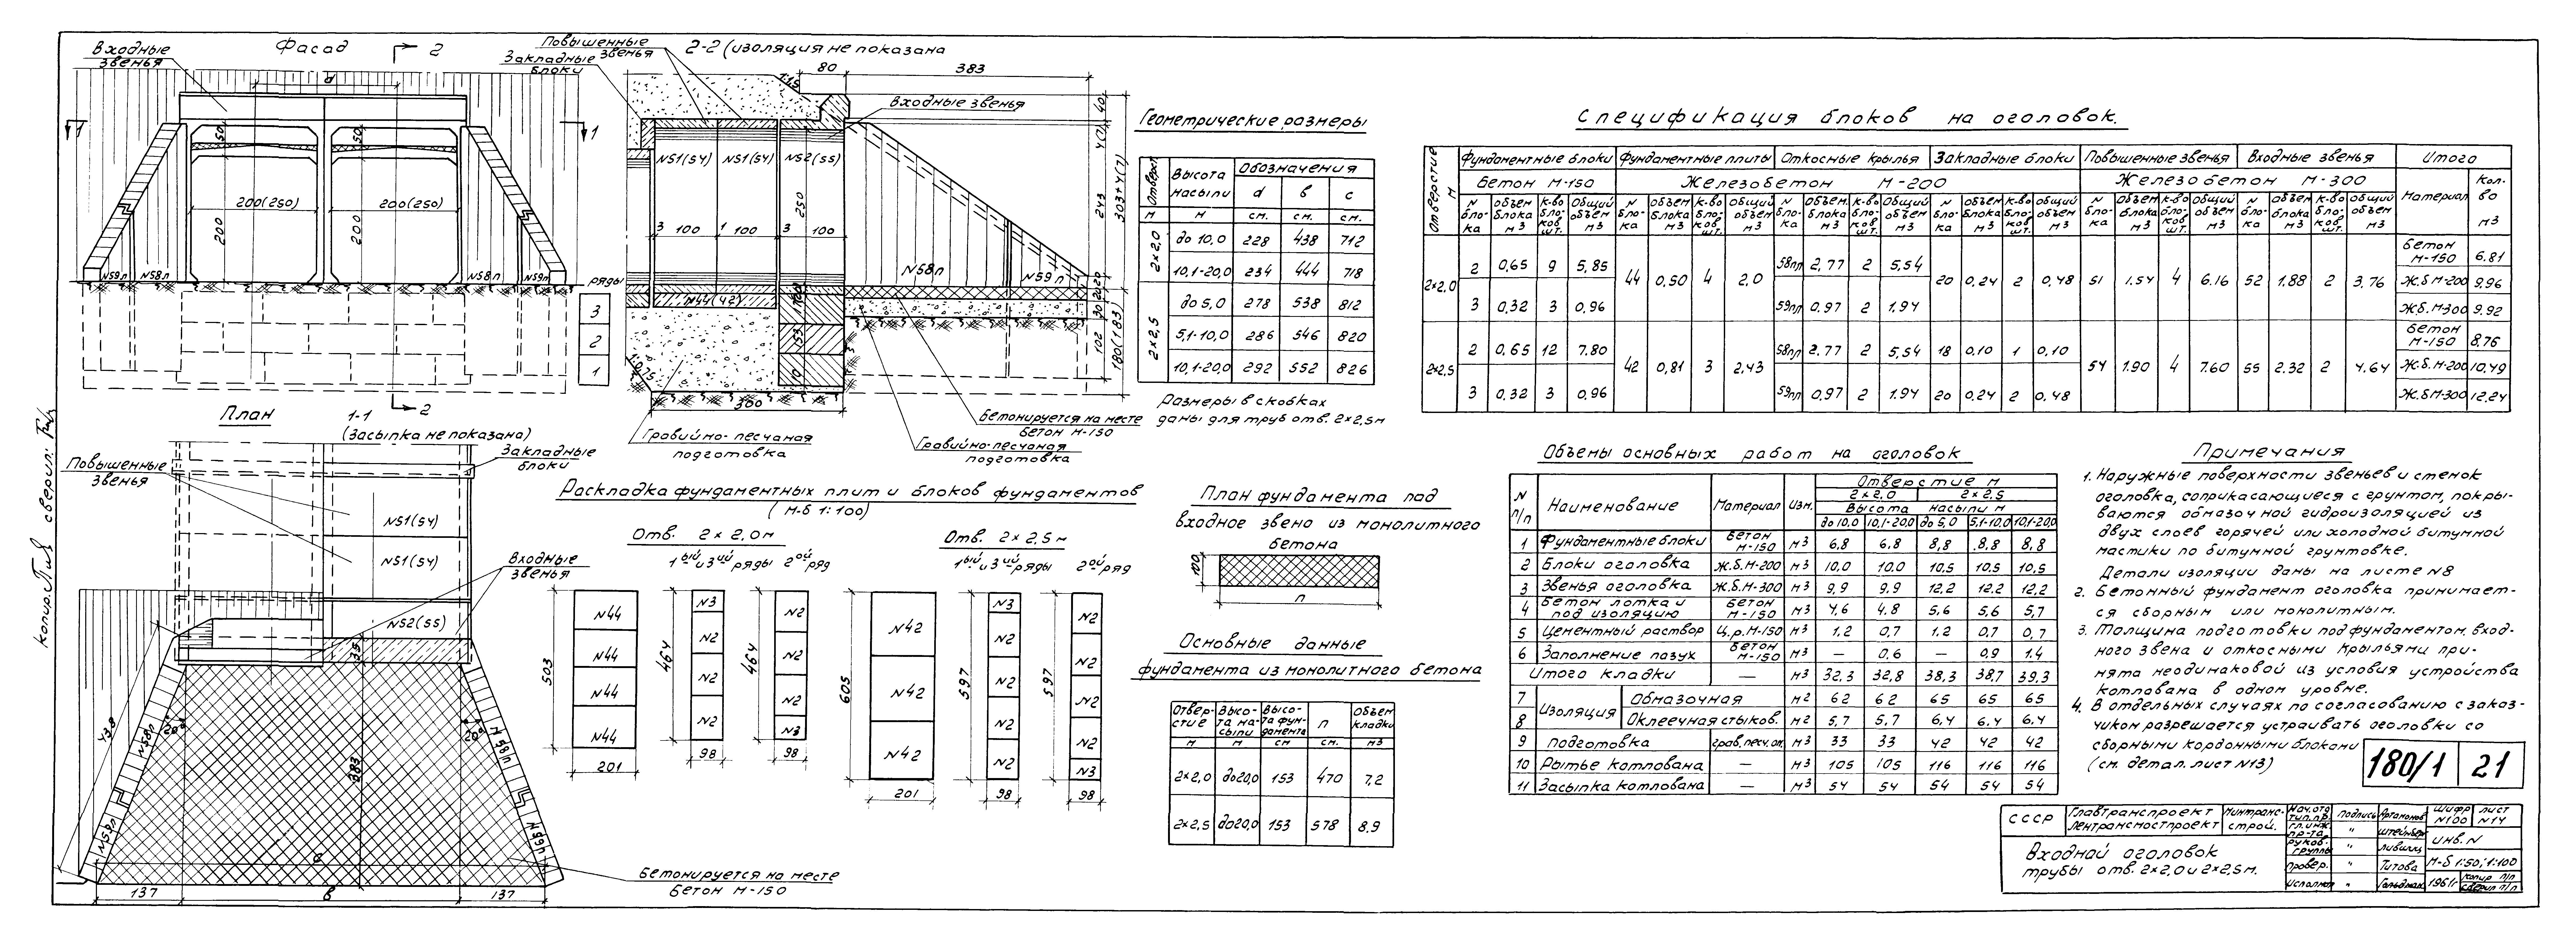 Фасад
2
Входные
звенья
d
1
1
50
50
200(250)
200(250)
200
200
N59п
N58п
N58п
N59п
ряды
3
2
1
2
2-2 (изоляция не показана
Повышенные
звенья
Закладные
блоки
1:1,5
80
383
Входные звенья
N51(54)
N51(54)
N52(55)
250
3 100
1 100
3 100
N58п
N59п
N44(42)
153
1:0,75
300
40
243
303+4(7)
20
20
30
102
180(183)
Гравийно-песчаная
подготовка
Бетонируется на месте
бетон М-150
Гравийно-песчаная
подготовка
План
1-1
(Засыпка не показана)
Закладные
блоки
Повышенные
звенья
N51(54)
N51(54)
Входные
звенья
N52(55)
438
20°
20°
383
N58п
N58п
N59п
N59п
c
137
в
137
Бетонируется на месте
бетон М-150
Геометрические размеры
Отверст. | Высота насыпи | Обозначения
d | в | с
м | м | см. | см. | см.
2×2,0 | до 10,0 | 228 | 438 | 712
10,1-20,0 | 234 | 444 | 718
2×2,5 | до 5,0 | 278 | 538 | 812
5,1-10,0 | 286 | 546 | 820
10,1-20,0 | 292 | 552 | 826
Размеры в скобках
даны для труб отв. 2×2,5м
Раскладка фундаментных плит и блоков фундаментов
(М-б 1:100)
Отв. 2×2,0м
1ый и 3ий ряды 2ой ряд
503
N44
N44
N44
N44
201
464
N3
N2
N2
N2
98
464
N2
N2
N2
N3
98
Отв. 2×2,5м
1ый и 3ий ряды 2ой ряд
605
N42
N42
N42
201
597
N3
N2
N2
N2
N2
98
597
N2
N2
N2
N2
N3
98
План фундамента под
входное звено из монолитного
бетона
100
п
Основные данные
фундамента из монолитного бетона
Отвер-стие | Высо-та на-сыпи | Высо-та фун-дамента | п | Объем кладки
м | м | см | см. | м3
2×2,0 | до20,0 | 153 | 470 | 7,2
2×2,5 | до20,0 | 153 | 578 | 8.9
Спецификация блоков на оголовок.
Отверстие м | Фундаментные блоки | Фундаментные плиты | Откосные крылья | Закладные блоки | Повышенные звенья | Входные звенья | Итого
Бетон М-150 | Железобетон М-200 | Железобетон М-300 | Материал | Кол-во м3
N бло-ка | объем блока м3 | к-во бло-ков шт. | Общий объем м3 | N бло-ка | объем блока м3 | к-во бло-ков шт. | Общий объем м3 | N бло-ка | объем блока м3 | к-во бло-ков шт. | Общий объем м3 | N бло-ка | объем блока м3 | к-во бло-ков шт. | Общий объем м3 | N бло-ка | объем блока м3 | к-во бло-ков шт. | Общий объем м3 | N бло-ка | объем блока м3 | к-во бло-ков шт. | общий объем м3
2×2,0 | 2 | 0,65 | 9 | 5,85 | 44 | 0,50 | 4 | 2,0 | 58пл | 2,77 | 2 | 5,54 | 20 | 0,24 | 2 | 0,48 | 51 | 1.54 | 4 | 6.16 | 52 | 1.88 | 2 | 3.76 | Бетон М-150 | 6.81
Ж.б.М-200 | 9,96
3 | 0,32 | 3 | 0,96 | 59пл | 0,97 | 2 | 1,94 | Ж.б.М300 | 9.92
2×2,5 | 2 | 0,65 | 12 | 7.80 | 42 | 0,81 | 3 | 2,43 | 58пл | 2.77 | 2 | 5,54 | 18 | 0,10 | 1 | 0,10 | 54 | 1.90 | 4 | 7.60 | 55 | 2.32 | 2 | 4.64 | Бетон М-150 | 8,76
Ж.б.М-200 | 10,49
3 | 0,32 | 3 | 0,96 | 59пл | 0,97 | 2 | 1.94 | 20 | 0,24 | 2 | 0,48 | Ж.б.М-300 | 12.24
Объемы основных работ на оголовок
N п/п | Наименование | Материал | Изм. | Отверстие м
2×2,0 | 2×2,5
Высота насыпи м
до 10,0 | 10,1-20,0 | до 5,0 | 5,1-10,0 | 10,1-20,0
1 | Фундаментные блоки | Бетон М-150 | м3 | 6,8 | 6,8 | 8,8 | 8,8 | 8,8
2 | Блоки оголовка | Ж.б.М-200 | м3 | 10,0 | 10.0 | 10,5 | 10,5 | 10,5
3 | Звенья оголовка | Ж.б.М-300 | м3 | 9,9 | 9.9 | 12.2 | 12.2 | 12,2
4 | Бетон лотка и под изоляцию | Бетон М-150 | м3 | 4,6 | 4.8 | 5,6 | 5,6 | 5,7
5 | Цементный раствор | Ц.р.М-150 | м3 | 1.2 | 0,7 | 1.2 | 0,7 | 0,7
6 | Заполнение пазух | Бетон М-150 | м3 | — | 0,6 | — | 0,9 | 1.4
Итого кладки | — | м3 | 32,3 | 32,8 | 38,3 | 38,7 | 39,3
7 | Изоляция | Обмазочная | м2 | 62 | 62 | 65 | 65 | 65
8 | Оклеечная стыков. | м2 | 5,7 | 5,7 | 6,4 | 6,4 | 6,4
9 | подготовка | грав.песч.сл. | м3 | 33 | 33 | 42 | 42 | 42
10 | Рытье котлована | — | м3 | 105 | 105 | 116 | 116 | 116
11 | Засыпка котлована | — | м3 | 54 | 54 | 54 | 54 | 54
Примечания
1. Наружные поверхности звеньев и стенок
оголовка, соприкасающиеся с грунтом, покры-
ваются обмазочной гидроизоляцией из
двух слоев горячей или холодной битумной
мастики по битумной грунтовке.
Детали изоляции даны на листе N8
2. Бетонный фундамент оголовка принимает-
ся сборным или монолитным.
3. Толщина подготовки под фундаментом, вход-
ного звена и откосными крыльями при-
нята неодинаковой из условия устройства
котлована в одном уровне.
4. В отдельных случаях по согласованию с заказ-
чиком разрешается устраивать оголовки со
сборными кордонными блоками
(см. детал. лист N13)
180/1 | 21
СССР | Главтранспроект Лентрансмостпроект | Минтранс-строй.
Входной оголовок
трубы отв. 2×2,0 и 2×2,5м.
Нач.отд. тип.пр. | подпись | Артамонов
гл.инж. пр-та | " | Штейнберг
руков. группы | " | Лившиц
провер. | " | Титова
исполнил | " | Гольдман
Шифр N100 | лист N14
инв. N
М-б 1:50; 1:100
1961г | копир п/п
сверил п/п
копир.
сверил: